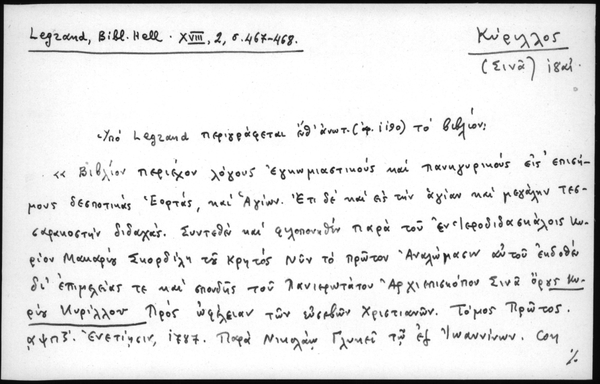 Legrand, Bibl. Hell. XVIII, 2, σ. 467-468.
Κύριλλος
(Σινᾶ) 18 αἰ.
Ὑπό Legrand περιγράφεται ὧδ' ἀνωτ. (ἀρ. 1190) τό βιβλίον:
« Βιβλίον περιέχον λόγους Ἐγκωμιαστικούς καί πανηγυρικούς εἰς ἐπισή-
μους δεσποτικάς Ἑορτάς, καί Ἁγίων. Ἔτι δέ καί εἰς τήν ἁγίαν καί μεγάλην τεσ-
σαρακοστήν διδαχάς. Συντεθέν καί φιλοπονηθέν παρά τοῦ ἐν Ἱεροδιδασκάλοις Κυ-
ρίου Μακαρίου Σκορδίλη τοῦ Κρητός Νῦν τό πρῶτον Ἀναλώμασιν αὐτοῦ ἐκδοθέν
δι' ἐπιμελείας τε καί σπουδῆς τοῦ Πανιερωτάτου Ἀρχιεπισκόπου Σινᾶ Ὄρους Κυ-
ρίου Κυρίλλου Πρός ὠφέλειαν τῶν εὐσεβῶν Χριστιανῶν. Τόμος Πρῶτος.
αψπζ'. Ἐνετίῃσιν, 1787. Παρά Νικολάῳ Γλυκεῖ τῷ ἐξ Ἰωαννίνων. Con
%